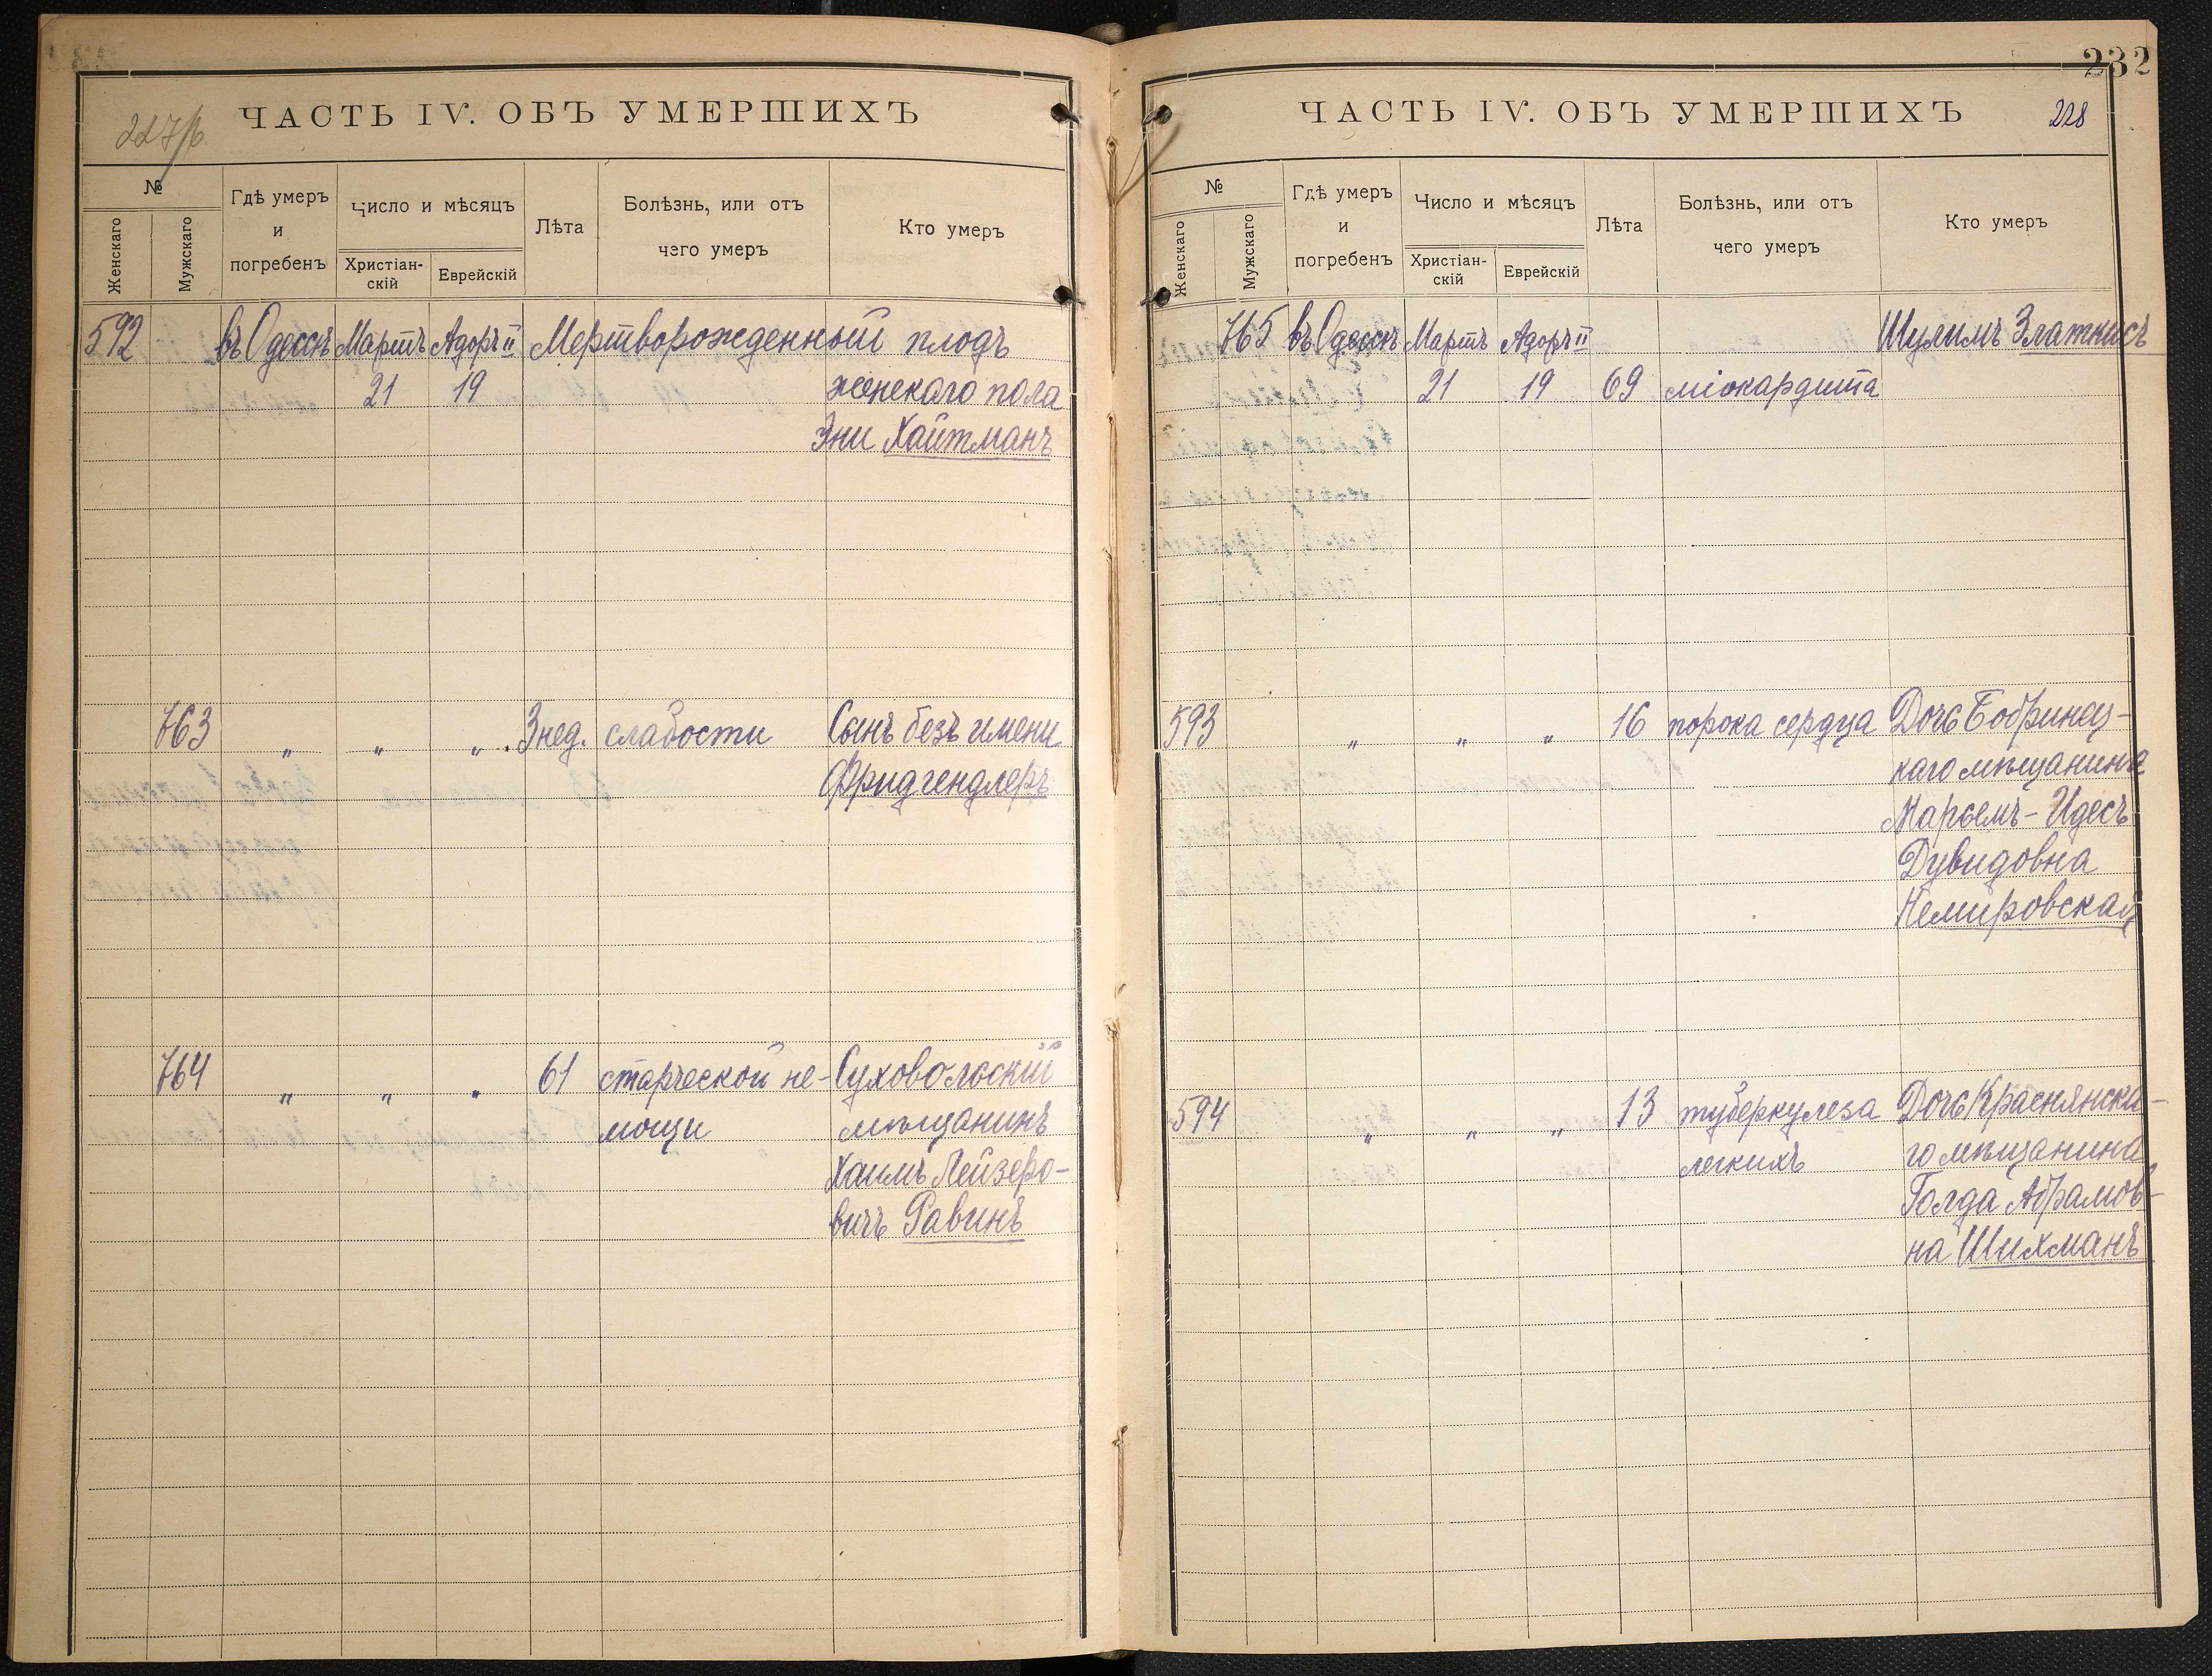 227/б.
ЧАСТЬ IV. ОБЪ УМЕРШИХЪ
№
Женскаго
Мужскаго
Гдѣ умеръ
и
погребенъ
Число и мѣсяцъ
Христіан-
скій
Еврейскій
Лѣта
Болѣзнь, или отъ
чего умеръ
Кто умеръ
592 въ Одессѣ Мартъ Адоръ II Мертворожденный плодъ
21 19 женскаго пола
Эни Хайтманъ
763 „ „ „ 3 нед. слабости Сынъ безъ имени
Фридгендлеръ
764 „ „ „ 61 старческой не- Суховольскій
мощи мѣщанинъ
Хаимъ Лейзеро-
вичъ Равинъ
232
ЧАСТЬ IV. ОБЪ УМЕРШИХЪ
228
№
Женскаго
Мужскаго
Гдѣ умеръ
и
погребенъ
Число и мѣсяцъ
Христіан-
скій
Еврейскій
Лѣта
Болѣзнь, или отъ
чего умеръ
Кто умеръ
765 въ Одессѣ Мартъ Адоръ II Шулимъ Златкисъ
21 19 69 міокардита
593 „ „ „ 16 порока сердца Дочь Бобринец-
каго мѣщанина
Марьемъ-Идесъ
Дувидовна
Немировская
594 „ „ „ 13 туберкулеза Дочь Краснянска-
легкихъ го мѣщанина
Голда Абрамов-
на Шихманъ